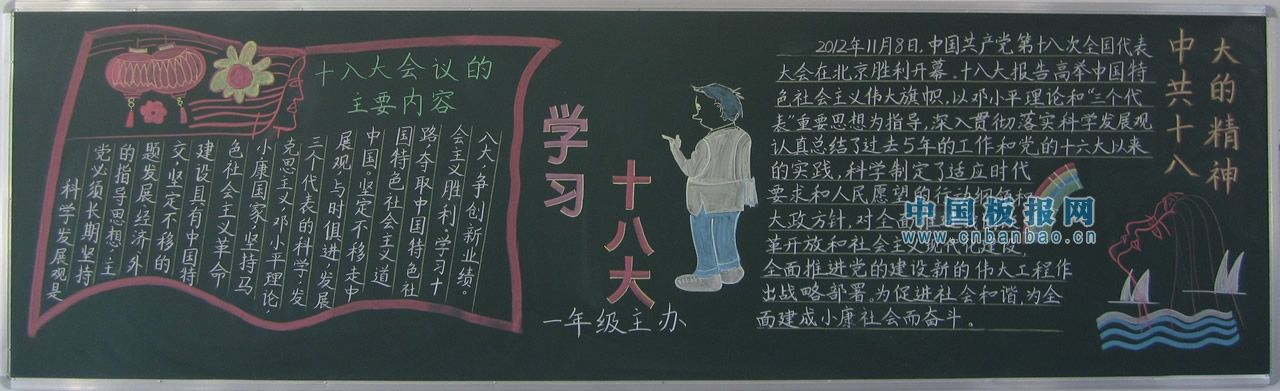 十八大会议的
主要内容
科学发展观是
党必须长期坚持
的指导思想.主
题发展.经济.外
文.坚定不移的
建设具有中国特
色社会主义革命
小康国家,坚持马
克思主义.邓小平理论,
三个代表的科学.发
展观.与时俱进.发展
中国.坚定不移走中
国特色社会主义道
路夺取中国特色社
会主义胜利.学习十
八大争创新业绩。
学习
十八大
一年级主办
2012年11月8日,中国共产党第十八次全国代表
大会在北京胜利开幕.十八大报告高举中国特
色社会主义伟大旗帜,以邓小平理论和“三个代
表”重要思想为指导,深入贯彻落实科学发展观
认真总结了过去5年的工作和党的十六大以来
的实践,科学制定了适应时代
要求和人民愿望的行动纲领和
大政方针,对全面
革开放和社会主义现代化建设,
全面推进党的建设新的伟大工程作
出战略部署。为促进社会和谐,为全
面建成小康社会而奋斗。
中共十八
大的精神
中国板报网
www.cnbanbao.cn